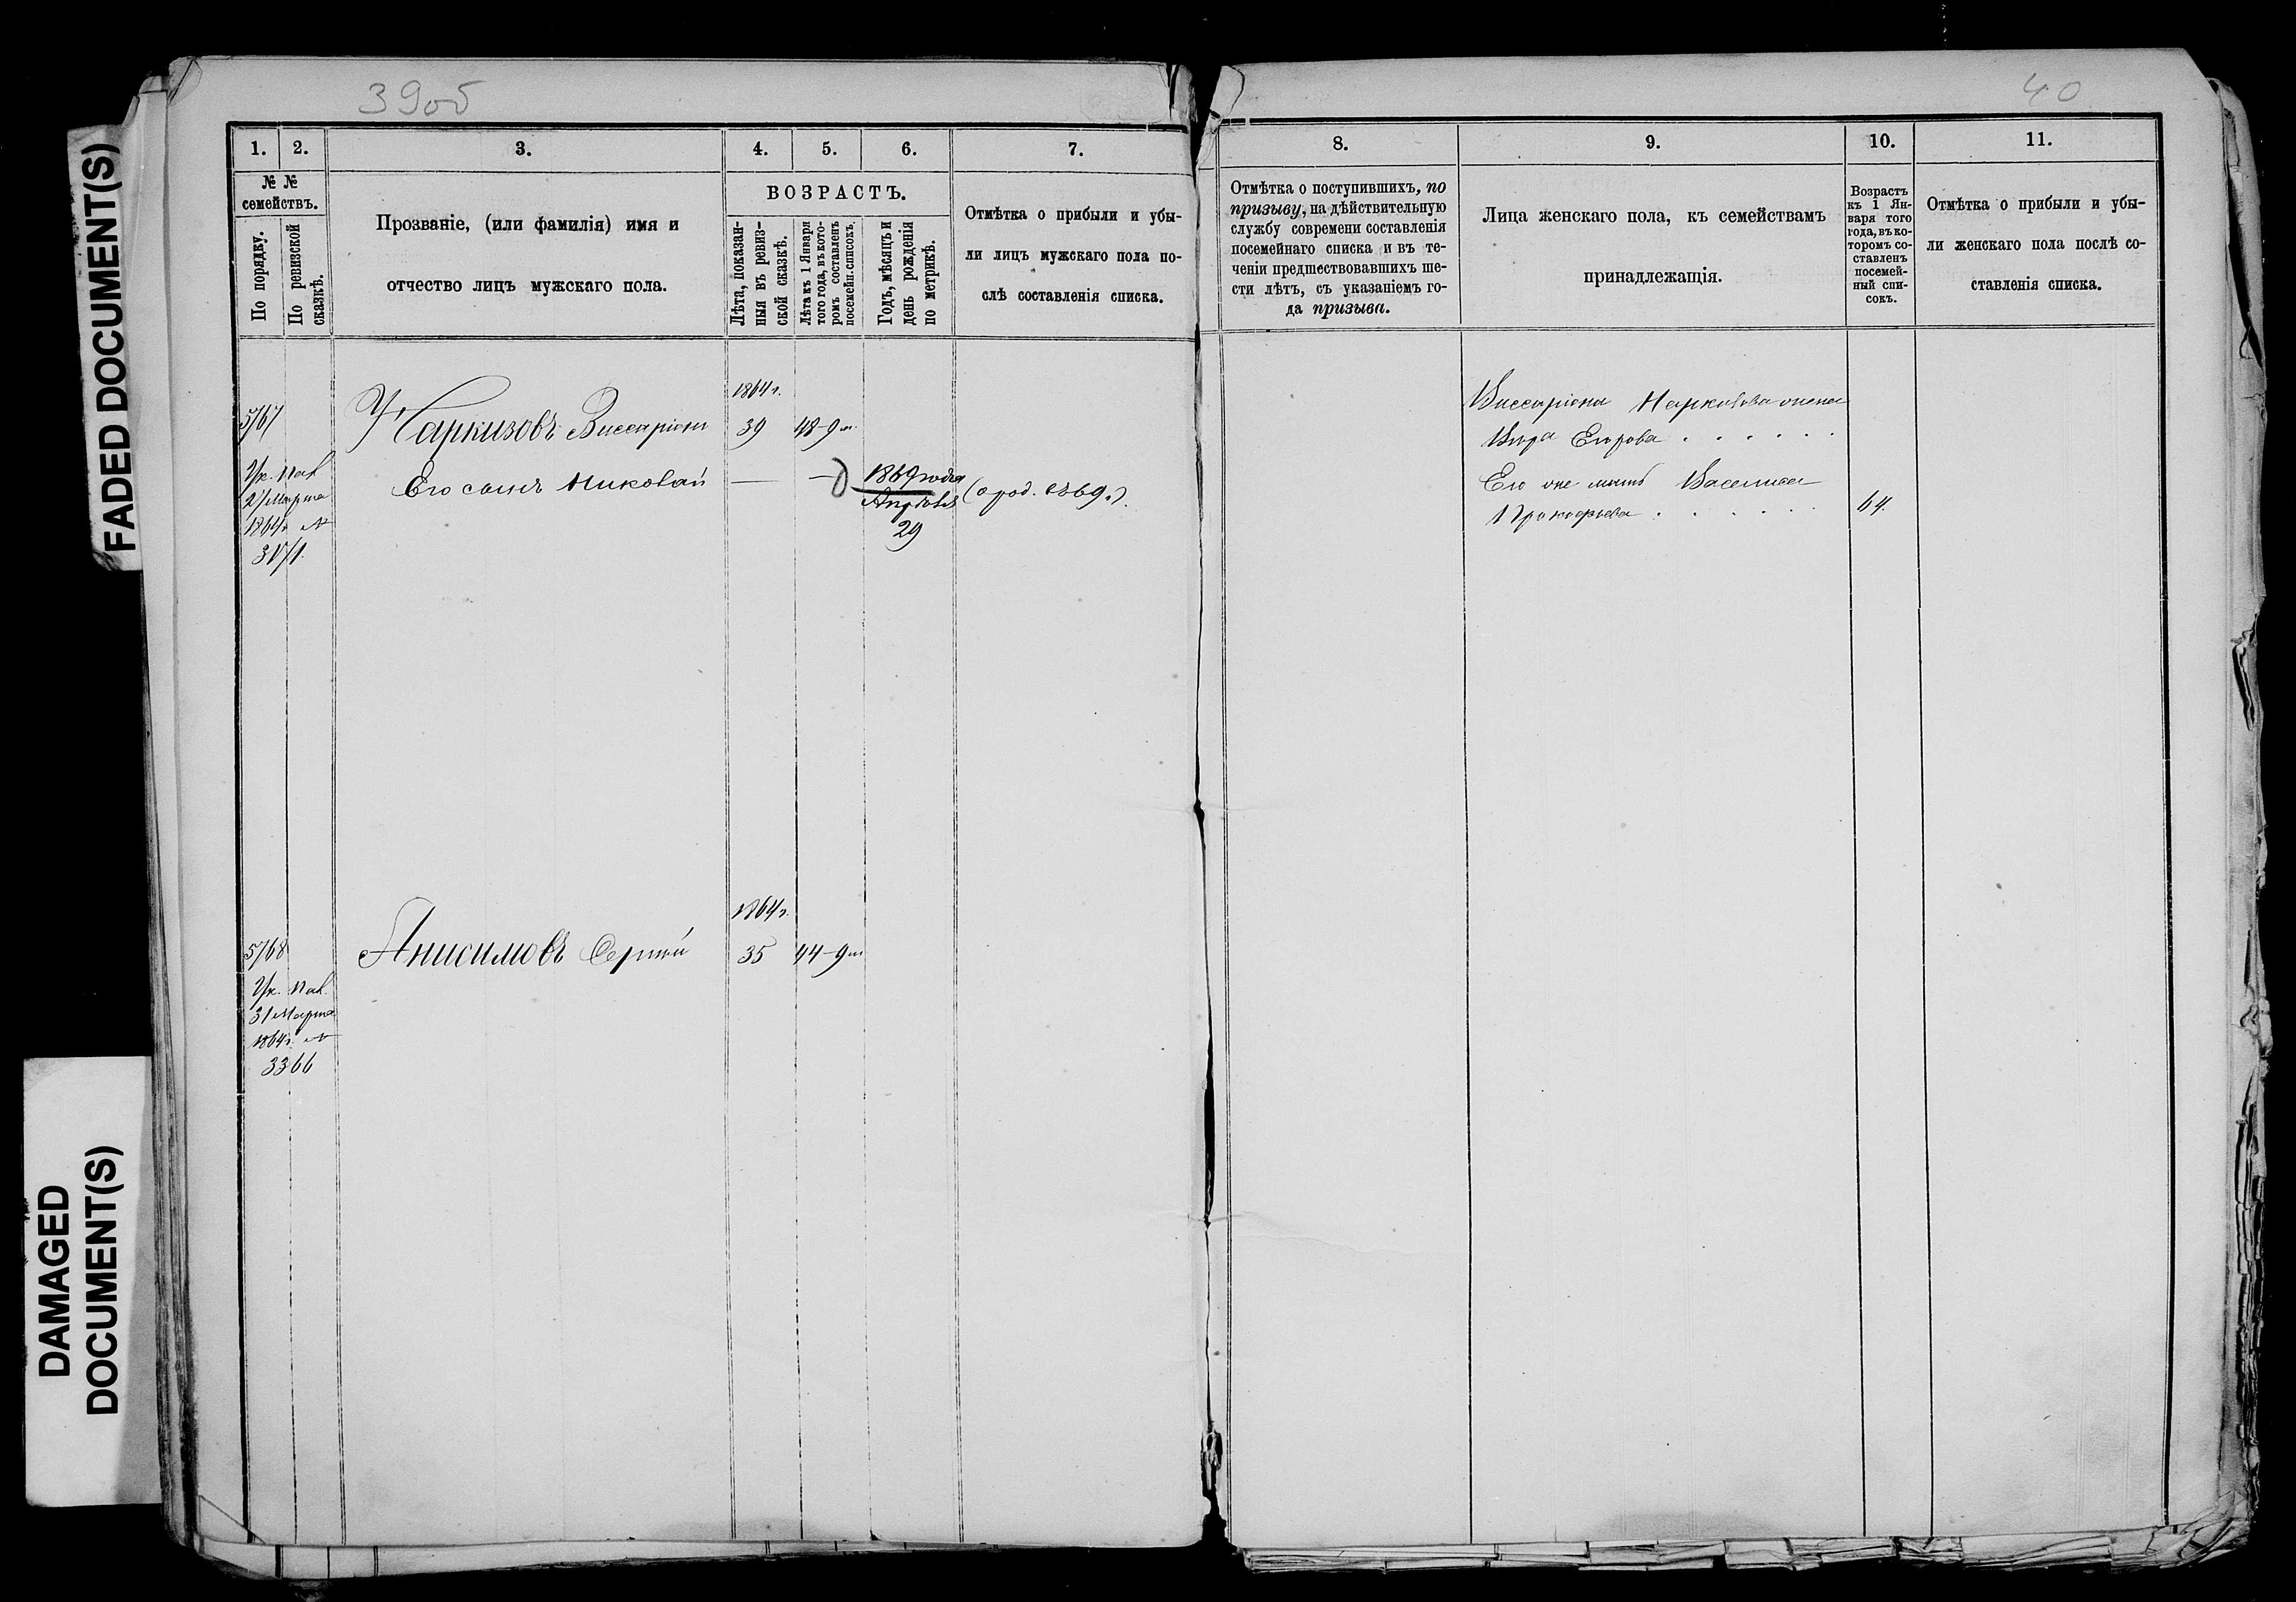 39об
40
FADED DOCUMENT(S)
DAMAGED
DOCUMENT(S)
1. 2. 3. 4. 5. 6. 7.
№ №
семействъ.
По порядку.
По ревизской
сказкѣ.
Прозваніе, (или фамилія) имя и
отчество лицъ мужскаго пола.
ВОЗРАСТЪ.
Лѣта, показан-
ныя въ ревиз-
ской сказкѣ.
Лѣта къ 1 Января
того года, въ кото-
ромъ составленъ
посемейн. списокъ.
Годъ, мѣсяцъ и
день рожденія
по метрикѣ.
Отмѣтка о прибыли и убы-
ли лицъ мужскаго пола по-
слѣ составленія списка.
5767
1864 г.
Каркизовъ Виссаріонъ 39 48-9 м.
Его сынъ Николай — — 1869 года
Апрѣля
29
(о род. 1869.)
Ук. Пал.
27 Марта
1864 г. №
3171.
5768
1864 г.
Анисимовъ Сергѣй 35 44-9 м
Ук. Пал.
31 Марта
1864 г. №
3366
8. 9. 10. 11.
Отмѣтка о поступившихъ, по
призыву, на дѣйствительную
службу современи составленія
посемейнаго списка и въ те-
ченіи предшествовавшихъ ше-
сти лѣтъ, съ указаніемъ го-
да призыва.
Лица женскаго пола, къ семействамъ
принадлежащія.
Возрастъ
къ 1 Ян-
варя того
года, въ ко-
торомъ со-
ставленъ
посемей-
ный спи-
сокъ.
Отмѣтка о прибыли и убы-
ли женскаго пола послѣ со-
ставленія списка.
Виссаріона жена
Вѣра Егорова . . . . . .
Его же мать Василиса
Прокофьева . . . . . . 64.